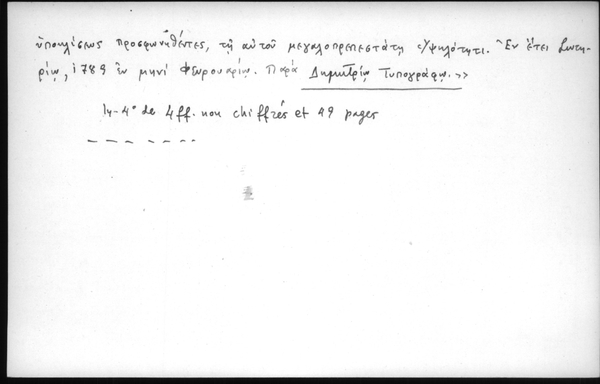 ὑποκλίσεως προσφωνηθέντες, τῇ αὐτοῦ μεγαλοπρεπεστάτῃ ὑψηλότητι. Ἐν ἔτει Σωτη-
ρίῳ, 1789 ἐν μηνὶ Φευρουαρίῳ. Παρὰ Δημητρίῳ Τυπογράφῳ.>>
In-4° de 4ff. non chiffrés et 49 pages